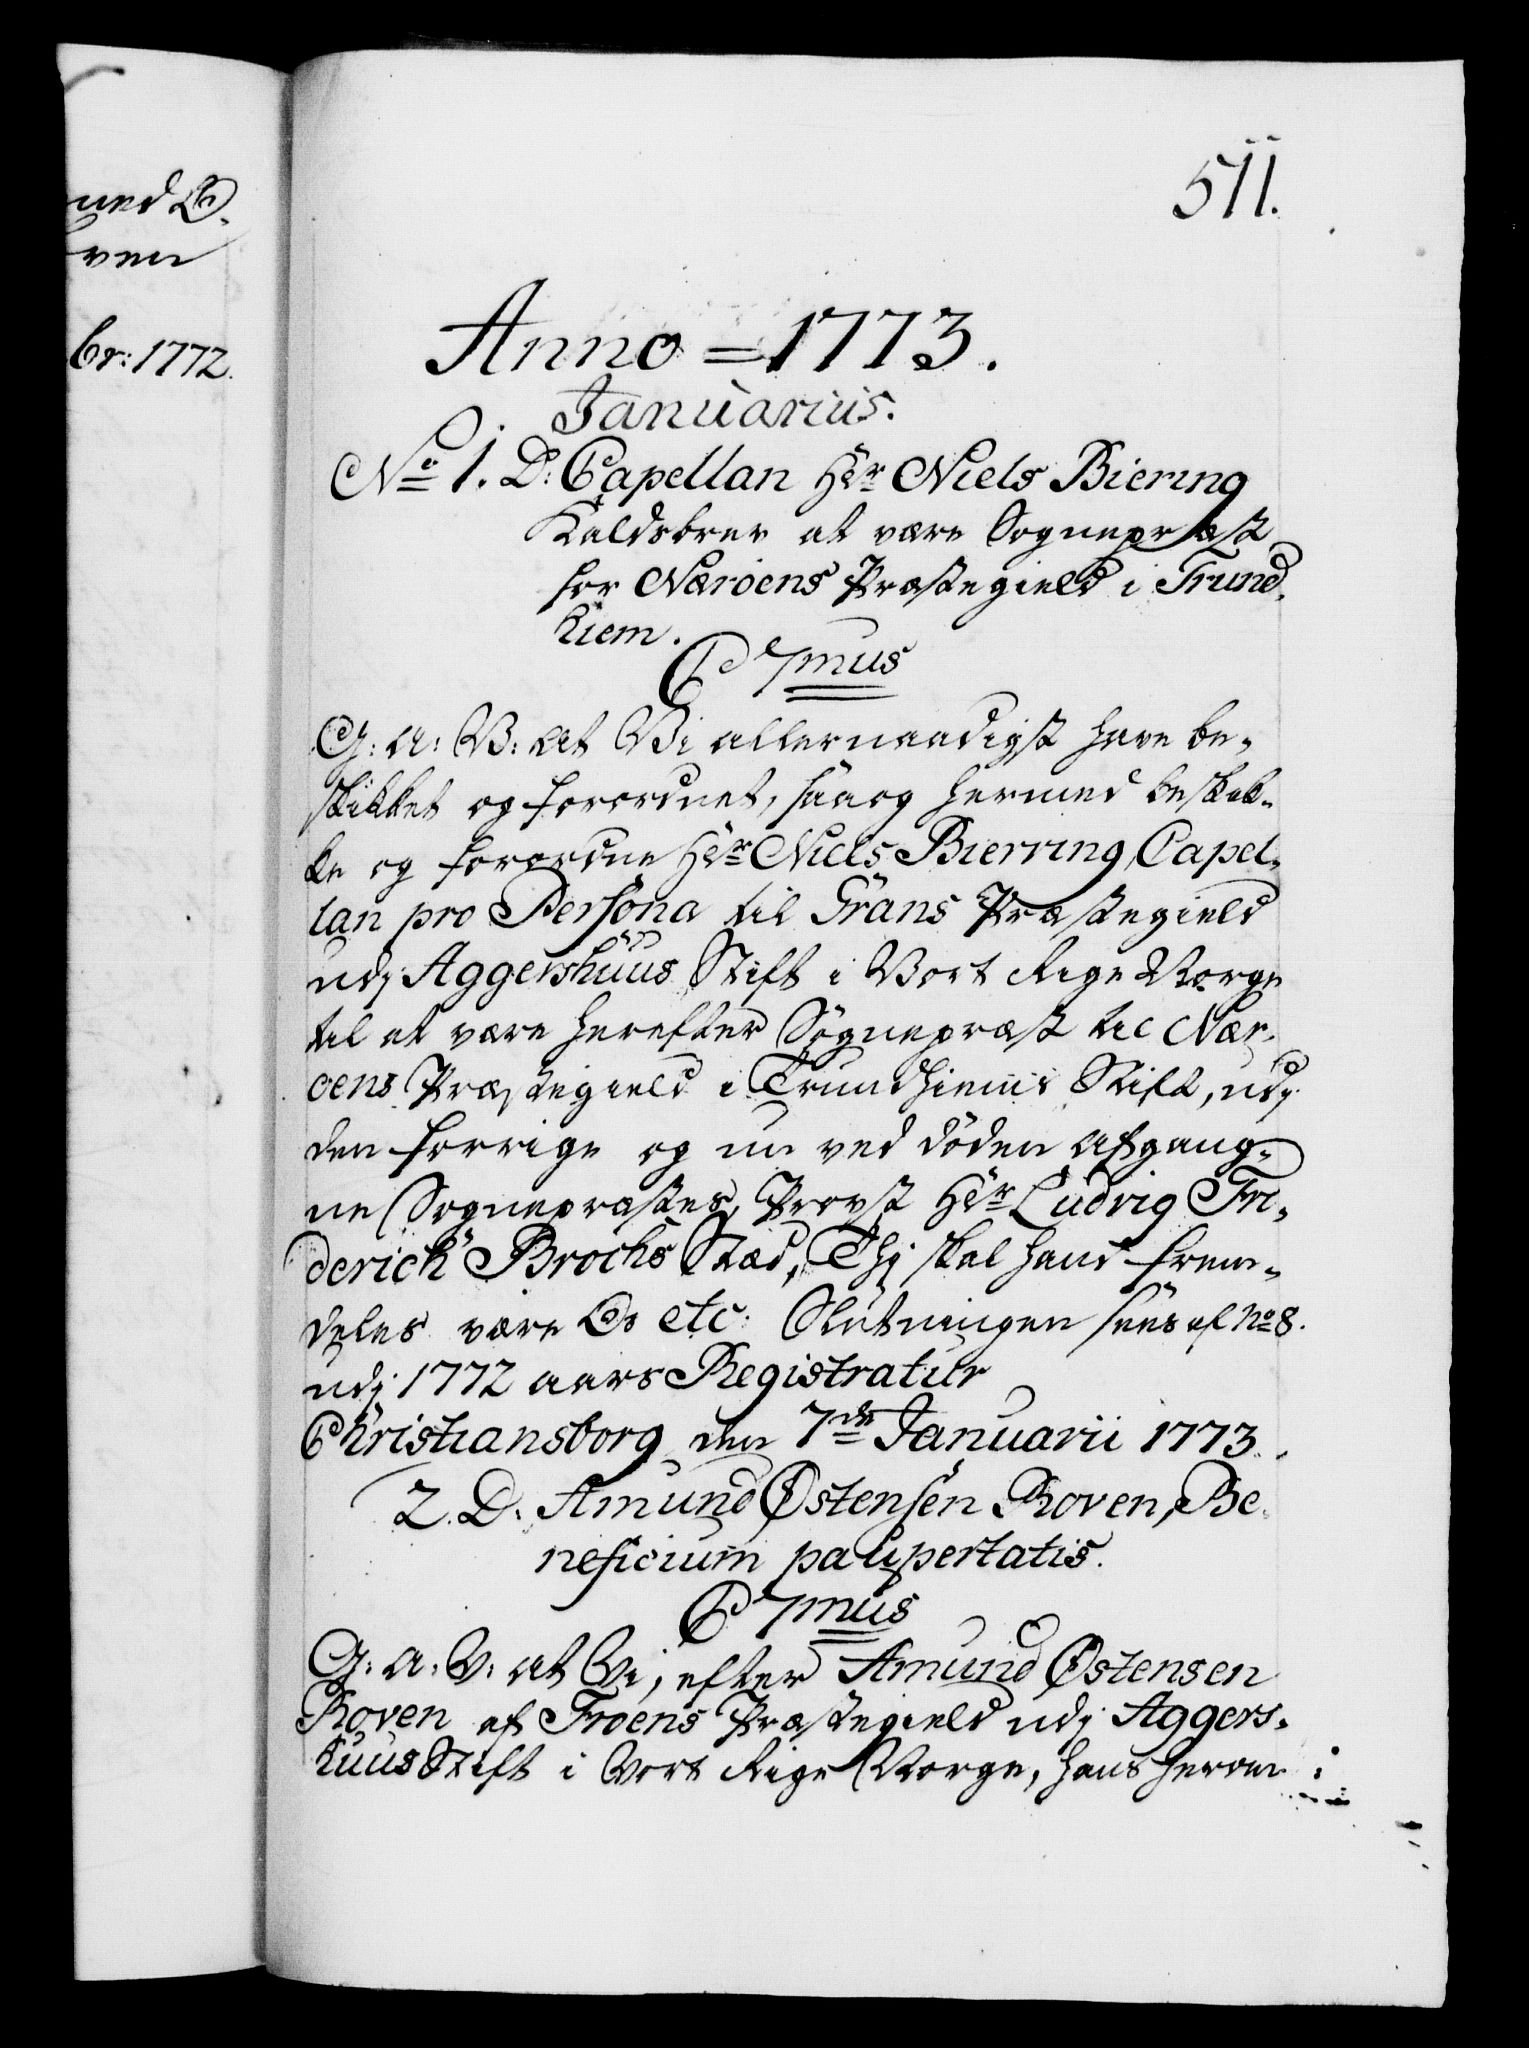 ned O.
ven
br: 1772.
511.
Anno = 1773.
Januarius.
No 1. D: Capellan Hr Niels Biering
Kaldsbrev at være Sognepræst
for Næröens Præstegield i Trund,
hiem.
C7mus
G: A: V: At Vi allernaadigst have be,
skikket og forordnet, saa og hermed beskik,
ke og forordne Hr Niels Bierring, Capel,
lan pro Persona til Grans Præstegield
udj Aggershuus Stift i Vort Rige Norge
til at være herefter Sognepræst til Nær,
öens Præstegield i Trundhiems Stift, udj
den forrige og nu ved döden afgang,
ne Sognepræstes, Provst Hr Ludvig Fri,
derich Brochs Stæd, Thj skal hand frem,
deles være &c etc: Slutningen sees af No 8.
udj 1772 aars Registratur
Christiansborg den 7de Januarii 1773.
2. D: Amund Østensen Roven, Be,
neficium paupertatis.
C7mus
G: A: V: At Vi, efter Amund Østensen
Roven af Froens Præstegield udj Aggers,
huus Stift i Vort Rige Norge, hans herom